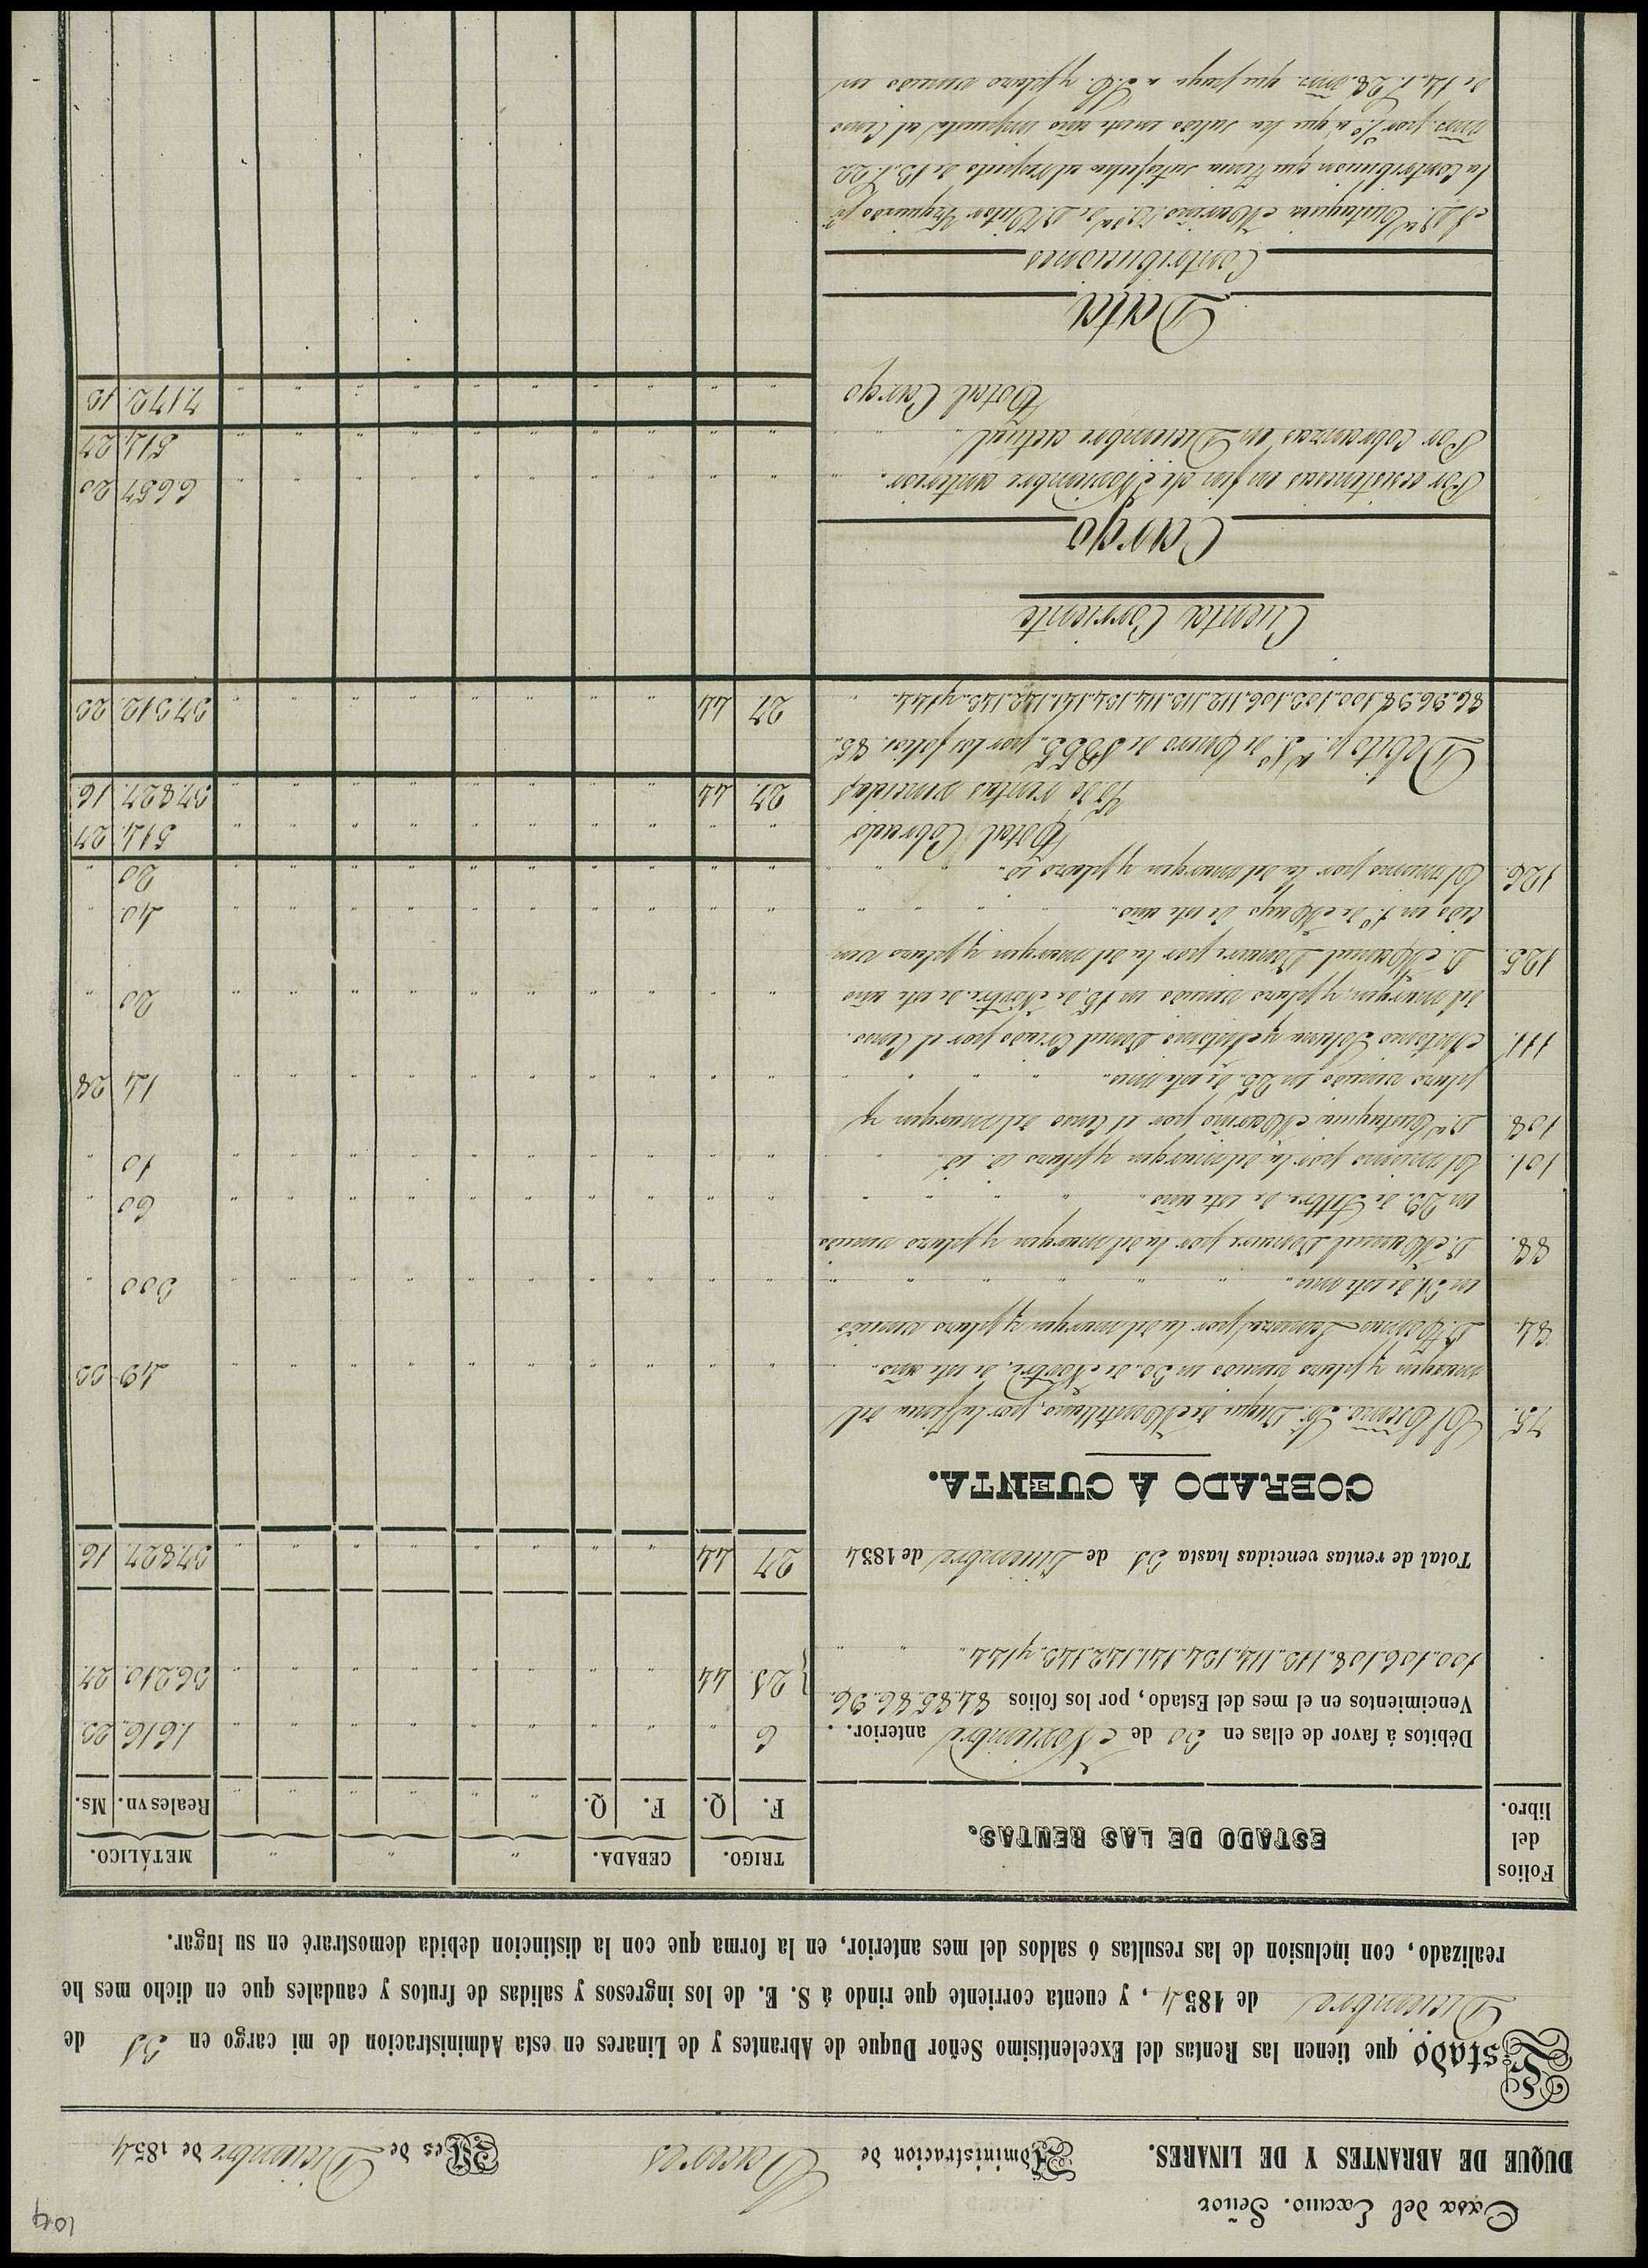 104
Casa del Excmo. Señor
DUQUE DE ABRANTES Y DE LINARES. Administracion de Cáceres Mes de Diciembre de 1854
Estado que tienen las Rentas del Excelentísimo Señor Duque de Abrantes y de Linares en esta Administracion de mi cargo en 31 de
Diciembre de 1854, y cuenta corriente que rindo á S. E. de los ingresos y salidas de frutos y caudales que en dicho mes he
realizado, con inclusion de las resultas ó saldos del mes anterior, en la forma que con la distincion debida demostraré en su lugar.
Folios del libro. ESTADO DE LAS RENTAS. TRIGO. CEBADA. " " " METÁLICO.
F. Q. F. Q. " " " " " " Reales vn. Ms.
Débitos á favor de ellas en 30 de Noviembre anterior. 6 " " " " " " " " " 1.616. 23
Vencimientos en el mes del Estado, por los folios 84..85..86..96.
100..106.108..113..114..134..141.142.143..y 144. " " } 21. 44 " " " " " " " " 36.210. 27
Total de rentas vencidas hasta 31 de Diciembre de 1854 27 44 " " " " " " " " 37.827. 16.
COBRADO Á CUENTA.
75. El Excmo. Sr. Duque de Montellano, por la Tierra del
margen y plazo vencido en 30. de Novbre. de este año. " " " " " " " " " " 49 33
84. D. Tomas por la del margen y plazo vencido
en 31. de este mes. " " " " " " " " " " 300 "
88. D. Manuel Donaire por la del margen y plazo vencido
en 29. de Stbre. de este año. " " " " " " " " " " 60 "
101. El mismo por la del margen y plazo id. id. " " " " " " " " " " 10 "
108. Dª Eustaquia Mariño por el Censo del margen y
plazo vencido en 25. de este mes. " " " " " " " " " " 14 28
111. Antonio Solana y Antonio Donel Criado por el Censo.
del margen, y plazo vencido en 15. de Novbre. de este año " " " " " " " " " " 20 "
125. D. Manuel Donaire por la del margen y plazo ven-
cido en 1.º de Mayo de este año. " " " " " " " " " " 40. "
126. El mismo por la del margen y plazo id. " " " " " " " " " " 20 "
Total Cobrado " " " " " " " " " " 514. 27
Yd. de rentas vencidas 27. 44 " " " " " " " " 37.827. 16
Debito pª 1º de Enero de 1855. por los folios. 85.
86..96.98.100.103.106.112.113.114.134.141.142.143..y 144. " 27. 44 " " " " " " " " 37312. 23
Cuenta Corriente
Cargo
Por existencias en fin de Noviembre anterior. " " " " " " " " " " 6657 20
Por cobranzas en Diciembre actual " " " " " " " " " " 514. 27
Total Cargo " " " " " " " " " " 7.172. 13
Data
Contribuciones
A Dª Eustaquia Mariño Vdª de D. Victor Izquierdo pª
la Contribucion que tiene satisfecha al respecto de 13. r. 22
mrs. por % a que ha salido en este año impuesta al Censo
de 14. r. 28. mrs. que paga a S.E. y plazo vencido en